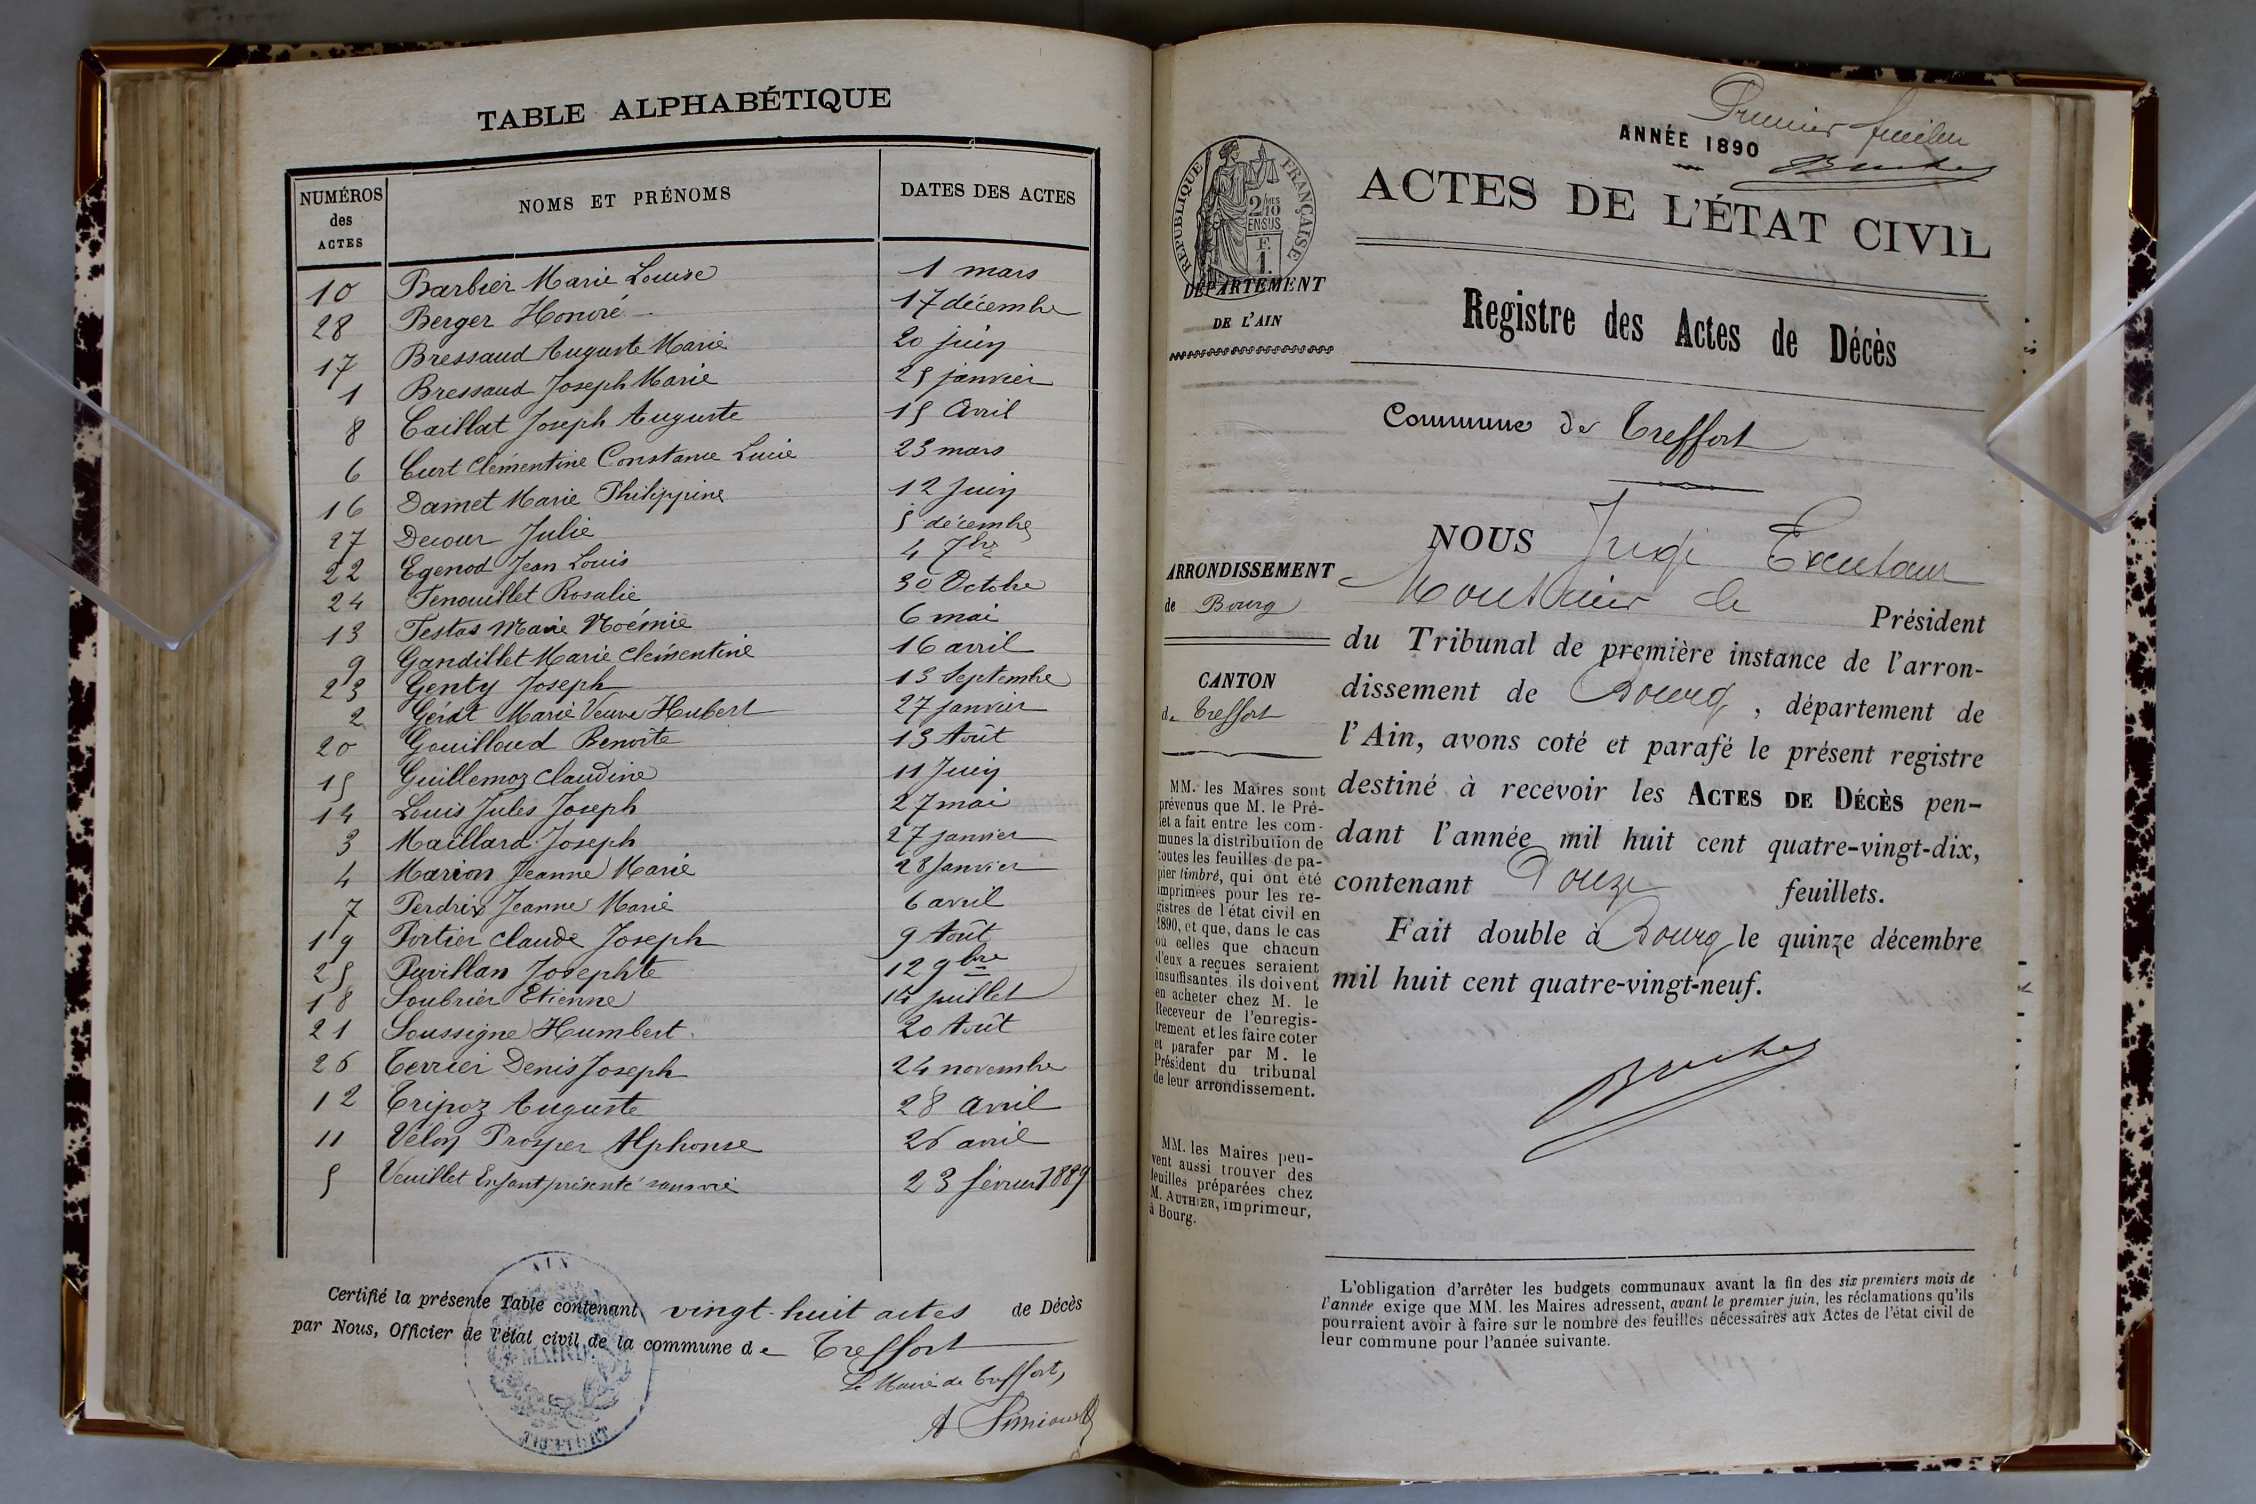 TABLE ALPHABÉTIQUE
NUMÉROS des ACTES NOMS ET PRÉNOMS DATES DES ACTES
10 Barbier Marie Louise 1 mars
28 Berger Honoré 17 décembre
17 Bressaud Auguste Marie 20 juin
1 Bressaud Joseph Marie 25 janvier
8 Caillat Joseph Auguste 15 Avril
6 Curt Clémentine Constance Lucie 23 mars
16 Damet Marie Philippine 12 Juin
27 Decour Julie 5 décembre
22 Egenod Jean Louis 4 7bre
24 Fenouillet Rosalie 30 Octobre
13 Festas Marie Noémie 6 mai
9 Gandillet Marie Clémentine 16 avril
23 Genty Joseph 13 Septembre
2 Marie Veuve Hubert 27 janvier
20 Gouilloud Benoîte 13 Août
15 Guillemoz Claudine 11 Juin
14 Louis Jules Joseph 27 mai
3 Maillard Joseph 27 janvier
4 Marion Jeanne Marie 28 Janvier
7 Perdrix Jeanne Marie 6 avril
19 Portier Claude Joseph 9 Août
25 Puvillan Josephte 12 9bre
18 Soubrier Etienne juillet
21 Soussigne Humbert 20 Août
26 Terrier Denis Joseph 24 novembre
12 Tripoz Auguste 28 avril
11 Vélon Prosper Alphonse 26 avril
5 Veuillet Enfant présenté sans vie 23 février 1889
Certifié la présente Table contenant vingt-huit actes de Décès
par Nous, Officier de l'état civil de la commune de Treffort
Le Maire de Treffort,
AIN
MAIRIE
TREFFORT
Premier feuillet
ANNÉE 1890
RÉPUBLIQUE FRANÇAISE
2/10 MES
EN SUS
F.
1.
ACTES DE L'ÉTAT CIVIL
DÉPARTEMENT
DE L'AIN
Registre des Actes de Décès
Commune de Treffort
ARRONDISSEMENT
de Bourg
CANTON
de Treffort
MM. les Maires sont
prévenus que M. le Pré-
fet a fait entre les com-
munes la distribution de
toutes les feuilles de pa-
pier timbré, qui ont été
imprimées pour les re-
gistres de l'état civil en
1890, et que, dans le cas
où celles que chacun
d'eux a reçues seraient
insuffisantes, ils doivent
en acheter chez M. le
Receveur de l'enregis-
trement et les faire coter
et parafer par M. le
Président du tribunal
de leur arrondissement.
MM. les Maires peu-
vent aussi trouver des
feuilles préparées chez
M. AUTHIER, imprimeur,
à Bourg.
NOUS Juge
Monsieur le Président
du Tribunal de première instance de l'arron-
dissement de Bourg, département de
l'Ain, avons coté et parafé le présent registre
destiné à recevoir les ACTES DE DÉCÈS pen-
dant l'année mil huit cent quatre-vingt-dix,
contenant Douze feuillets.
Fait double à Bourg le quinze décembre
mil huit cent quatre-vingt-neuf.
L'obligation d'arrêter les budgets communaux avant la fin des six premiers mois de
l'année exige que MM. les Maires adressent, avant le premier juin, les réclamations qu'ils
pourraient avoir à faire sur le nombre des feuilles nécessaires aux Actes de l'état civil de
leur commune pour l'année suivante.